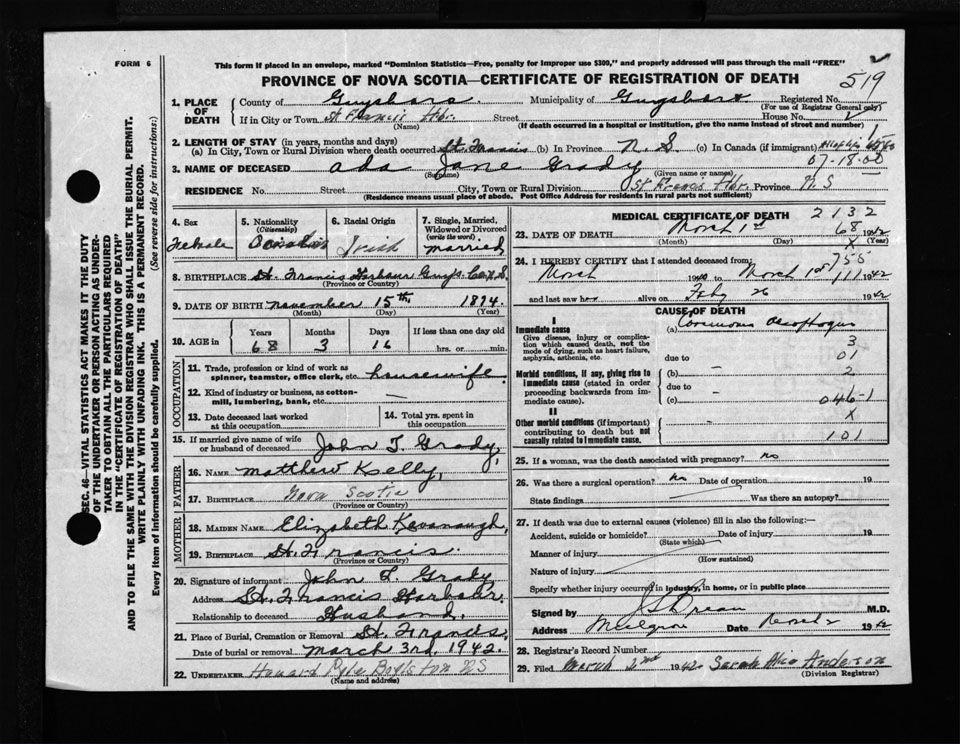 FORM 6
This form if placed in an envelope, marked "Dominion Statistics—Free, penalty for improper use $300," and properly addressed will pass through the mail "FREE"
PROVINCE OF NOVA SCOTIA—CERTIFICATE OF REGISTRATION OF DEATH
519
1. PLACE OF DEATH
County of Guysboro. Municipality of Guysboro Registered No.
(For use of Registrar General only)
If in City or Town St Francis Hbr. Street House No.
(Name) (If death occurred in a hospital or institution, give the name instead of street and number)
2. LENGTH OF STAY (in years, months and days)
(a) In City, Town or Rural Division where death occurred St. Francis (b) In Province N. S. (c) In Canada (if immigrant) All of life
07-18-00
3. NAME OF DECEASED Ada Jane Grady
(Surname) (Given name or names)
RESIDENCE No. Street City, Town or Rural Division St Francis Hbr. Province N. S
(Residence means usual place of abode. Post Office Address for residents in rural parts not sufficient)
4. Sex Female
5. Nationality (Citizenship) Canadian
6. Racial Origin Irish
7. Single, Married, Widowed or Divorced (write the word) Married
8. BIRTHPLACE St. Francis Harbour Guys. Co. N. S.
(Province or Country)
9. DATE OF BIRTH November 15th, 1874.
(Month) (Day) (Year)
10. AGE in Years Months Days If less than one day old
68 3 16 hrs. or min.
OCCUPATION
11. Trade, profession or kind of work as spinner, teamster, office clerk, etc. housewife
12. Kind of industry or business, as cotton-mill, lumbering, bank, etc. —
13. Date deceased last worked at this occupation
14. Total yrs. spent in this occupation
15. If married give name of wife or husband of deceased John T. Grady,
FATHER
16. NAME Matthew Kelly,
17. BIRTHPLACE Nova Scotia
(Province or Country)
MOTHER
18. MAIDEN NAME Elizabeth Kavanaugh,
19. BIRTHPLACE St. Francis.
(Province or Country)
20. Signature of informant John T. Grady
Address St. Francis Harbour.
Relationship to deceased Husband.
21. Place of Burial, Cremation or Removal St. Francis,
Date of burial or removal March 3rd, 1942.
22. UNDERTAKER Howard Boylston NS
(Name and address)
MEDICAL CERTIFICATE OF DEATH 2132
23. DATE OF DEATH March 1st 1942
68
(Month) (Day) (Year)
X
24. I HEREBY CERTIFY that I attended deceased from:
755
March 19 to March 1st 1942
111
and last saw her alive on Feby 26 1942
CAUSE OF DEATH
I
Immediate cause
Give disease, injury or complication which caused death, not the mode of dying, such as heart failure, asphyxia, asthenia, etc.
(a) Carcinoma Oesophagus
3
due to 01
Morbid conditions, if any, giving rise to immediate cause (stated in order proceeding backwards from immediate cause).
(b) - 2
due to
(c) - 046-1
II
Other morbid conditions (if important) contributing to death but not causally related to immediate cause.
X
101
25. If a woman, was the death associated with pregnancy? No
26. Was there a surgical operation? No Date of operation 19
State findings Was there an autopsy?
27. If death was due to external causes (violence) fill in also the following:—
Accident, suicide or homicide? Date of injury 19
(State which)
Manner of injury
(How sustained)
Nature of injury
Specify whether injury occurred in industry, in home, or in public place
Signed by M.D.
Address Mulgrave Date March 2 1942
28. Registrar's Record Number
29. Filed March 2nd 1942. Sarah Anderson
(Division Registrar)
SEC. 46—VITAL STATISTICS ACT MAKES IT THE DUTY OF THE UNDERTAKER OR PERSON ACTING AS UNDERTAKER TO OBTAIN ALL THE PARTICULARS REQUIRED IN THE "CERTIFICATE OF REGISTRATION OF DEATH" AND TO FILE THE SAME WITH THE DIVISION REGISTRAR WHO SHALL ISSUE THE BURIAL PERMIT.
WRITE PLAINLY WITH UNFADING INK. THIS IS A PERMANENT RECORD.
Every item of Information should be carefully supplied. (See reverse side for instructions.)